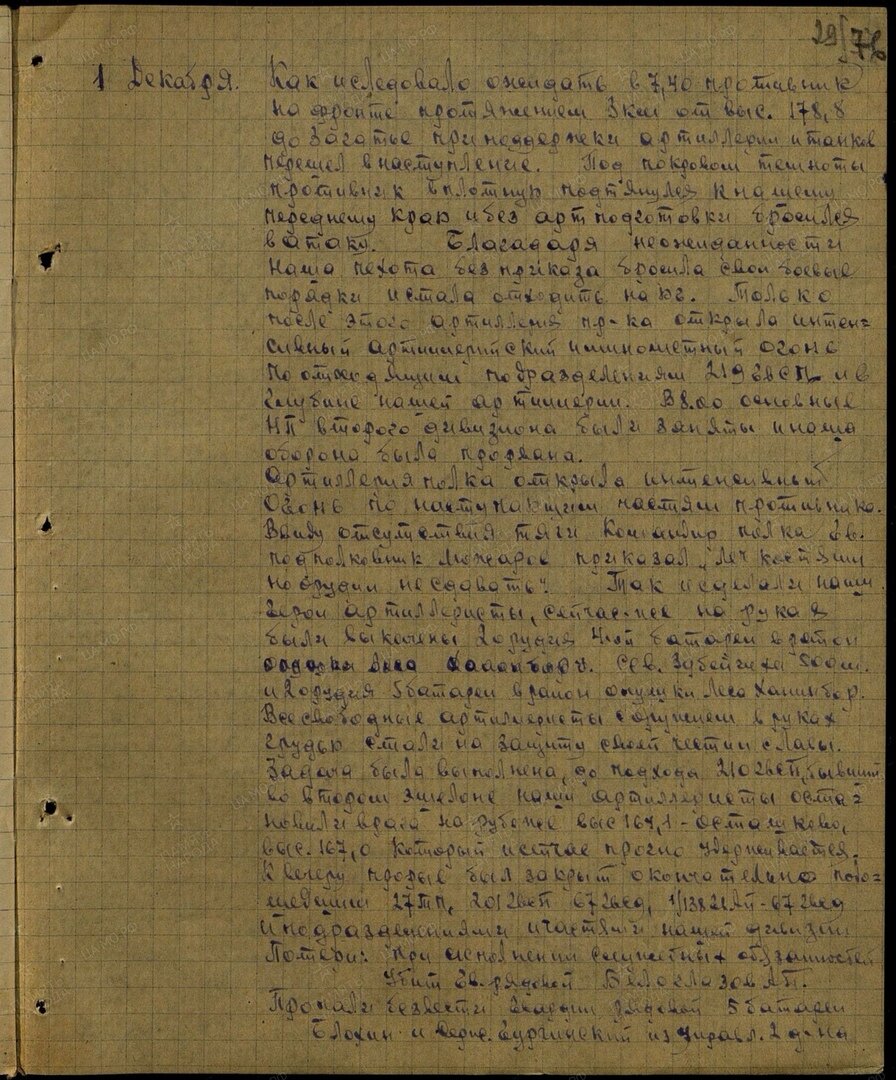 29 76
1 Декабря. Как и следовало ожидать в 7,40 противник
на фронте протяжением 3 км от выс. 178,8
до Загатье при поддержки артиллерии и танков
перешел в наступление. Под покровом темноты
противник вплотную подтянулся к нашему
переднему краю и без артподготовки бросился
в атаку. Благадаря неожиданности
наша пехота без приказа бросила свои боевые
порядки и стала отходить на юг. Только
после этого артиллерия пр-ка открыла интен=
сивный артиллерийский и минометный огонь
по отходящим подразделениям 219 гвсп и в
глубине нашей артиллерии. В 8.00 основные
НП второго дивизиона были заняты и наша
оборона была прорвана.
Артиллерия полка открыла интенсивный
огонь по наступающим частям противника.
Ввиду отсутствия тяги Командир полка гв.
подполковник приказал „лечь костями
но орудии не сдавать". Так и сделали наши
герои артиллеристы, сейчас-же на руках
были выкачены 2 орудия 4-ой батареи в район
сев. Зубейгиха 500 м.
и 2 орудия 5 батареи в район опушки леса
Все свободные артиллеристы с оружием в руках
грудью стали на защиту своей чести и славы.
Задача была выполнена, до подхода 210 гвсп, бывший
во втором эшелоне наши артиллеристы оста=
новили врага на рубеже выс 164,1 - Осташково,
выс. 167,0 который и сейчас прочно удерживается.
К вечеру прорыв был закрыт окончательно подо=
шедшими 27 тп, 201 гвсп 67 гвсд, 1/138 гв. АП - 67 гвсд
и подразделениями и частями нашей дивизии
Потери: при исполнении служебных обязанностей
Убит гв. рядовой Белоглазов А.П.
Пропали безвести гвардии рядовой 5 батареи
Блохин и из управл. 2 д-на